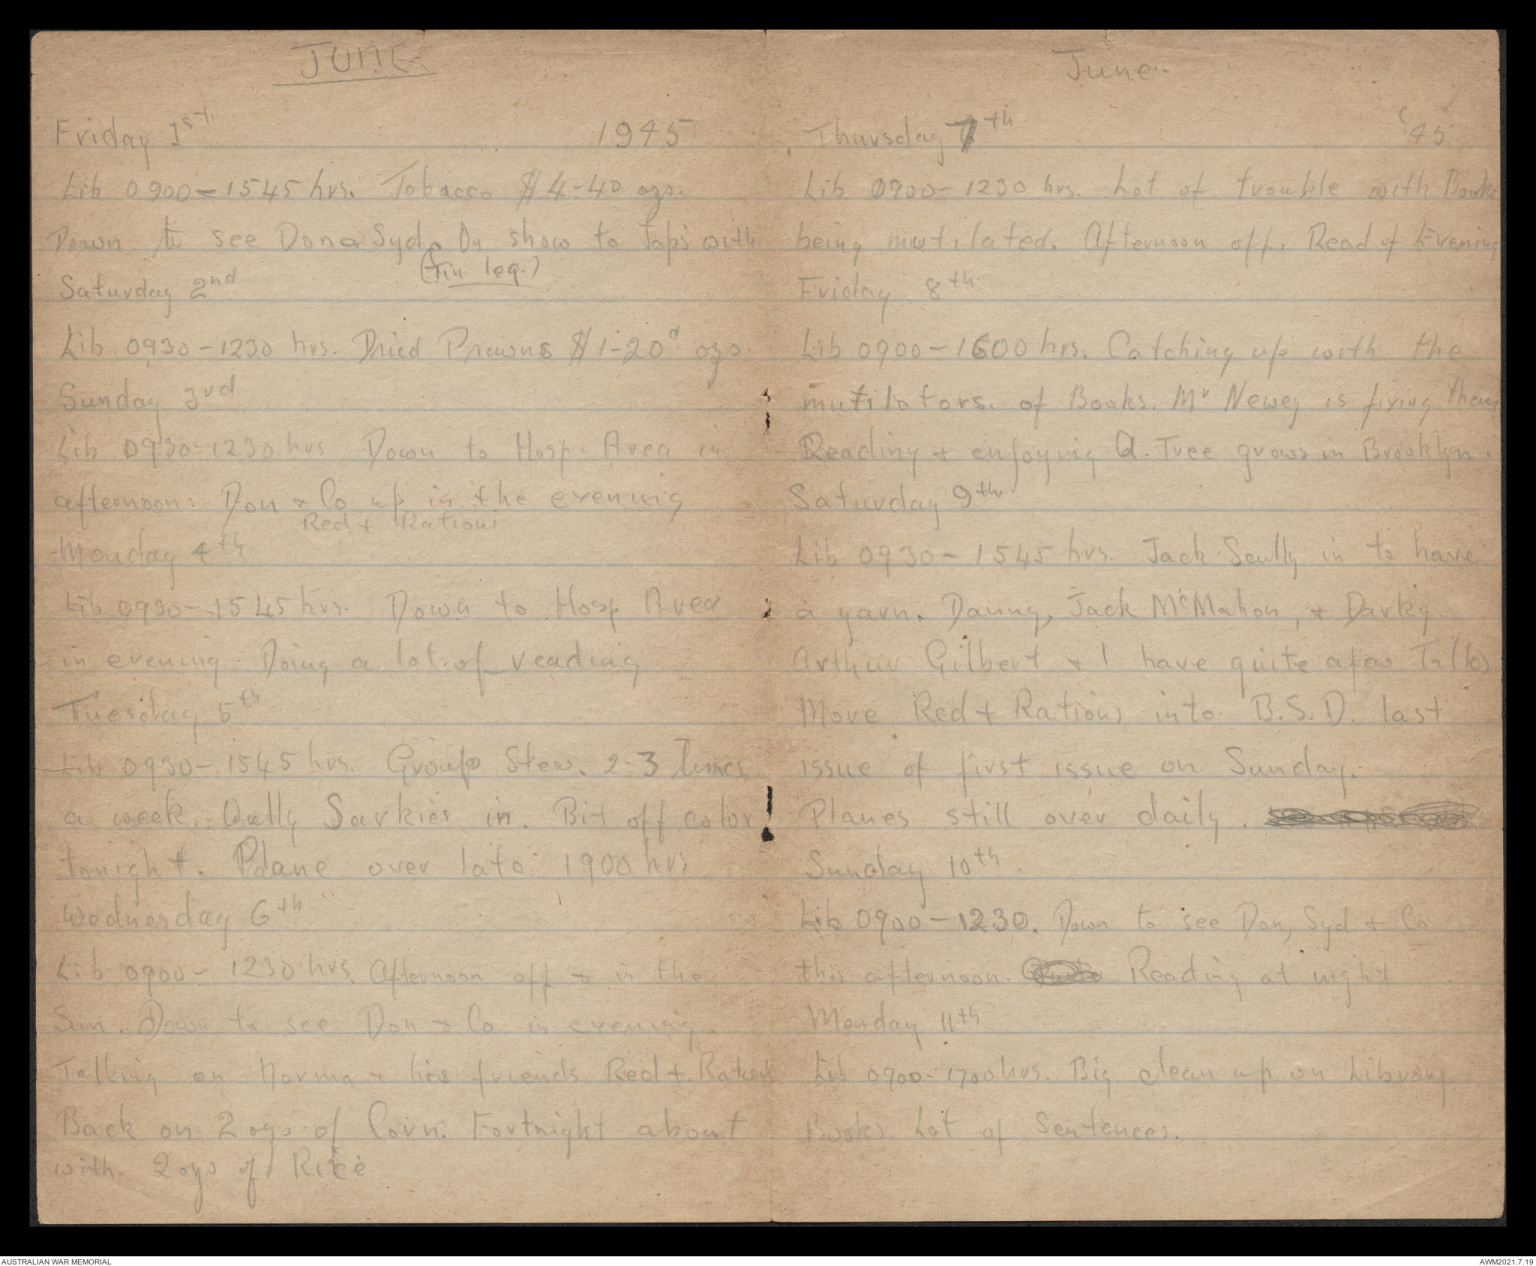 JUNE.
Friday 1st. 1945
Lib 0900-1545 hrs. Tobacco $4-40 ozs.
Down to see Don & Syd. On show to Japs with
(tin leg.)
Saturday 2nd
Lib 0930-1230 hrs. Dried Prawns $1-20 ozs.
Sunday 3rd
Lib 0930-1230 hrs Down to Hosp. Area in
afternoon: Don & Co up in the evening
Red + Rations
Monday 4th
Lib 0930-1545 hrs. Down to Hosp Area
in evening. Doing a lot of reading
Tuesday 5th
Lib 0930-1545 hrs. Group Stew. 2-3 Times
a week. Wally Sarkies in. Bit off color
tonight. Plane over late 1900 hrs
Wednesday 6th
Lib 0900-1230 hrs. Afternoon off & in the
Sun. Down to see Don & Co in evening.
Talking on Norma & her friends Red + Rations
Back on 2 ozs of Corn. Fortnight about
with 2 ozs of Rice
June.
Thursday 7th '45
Lib 0900-1230 hrs. Lot of trouble with Books
being mutilated. Afternoon off. Read of Evening
Friday 8th
Lib 0900-1600 hrs. Catching up with the
mutilators. of Books. Mr Newey is fixing them
Reading & enjoying A. Tree grows in Brooklyn.
Saturday 9th
Lib 0930-1545 hrs. Jack Scully in to have
a yarn. Danny, Jack McMahon, & Darky.
Arthur Gilbert & I have quite a few Talks
Move Red + Rations into B.S.D. last
issue of first issue on Sunday.
Planes still over daily.
Sunday 10th
Lib 0900-1230. Down to see Don, Syd & Co
this afternoon. Reading at night
Monday 11th
Lib 0900-1700 hrs. Big clean up on Library
Books. Lot of Sentences.
AUSTRALIAN WAR MEMORIAL
AWM2021.7.19